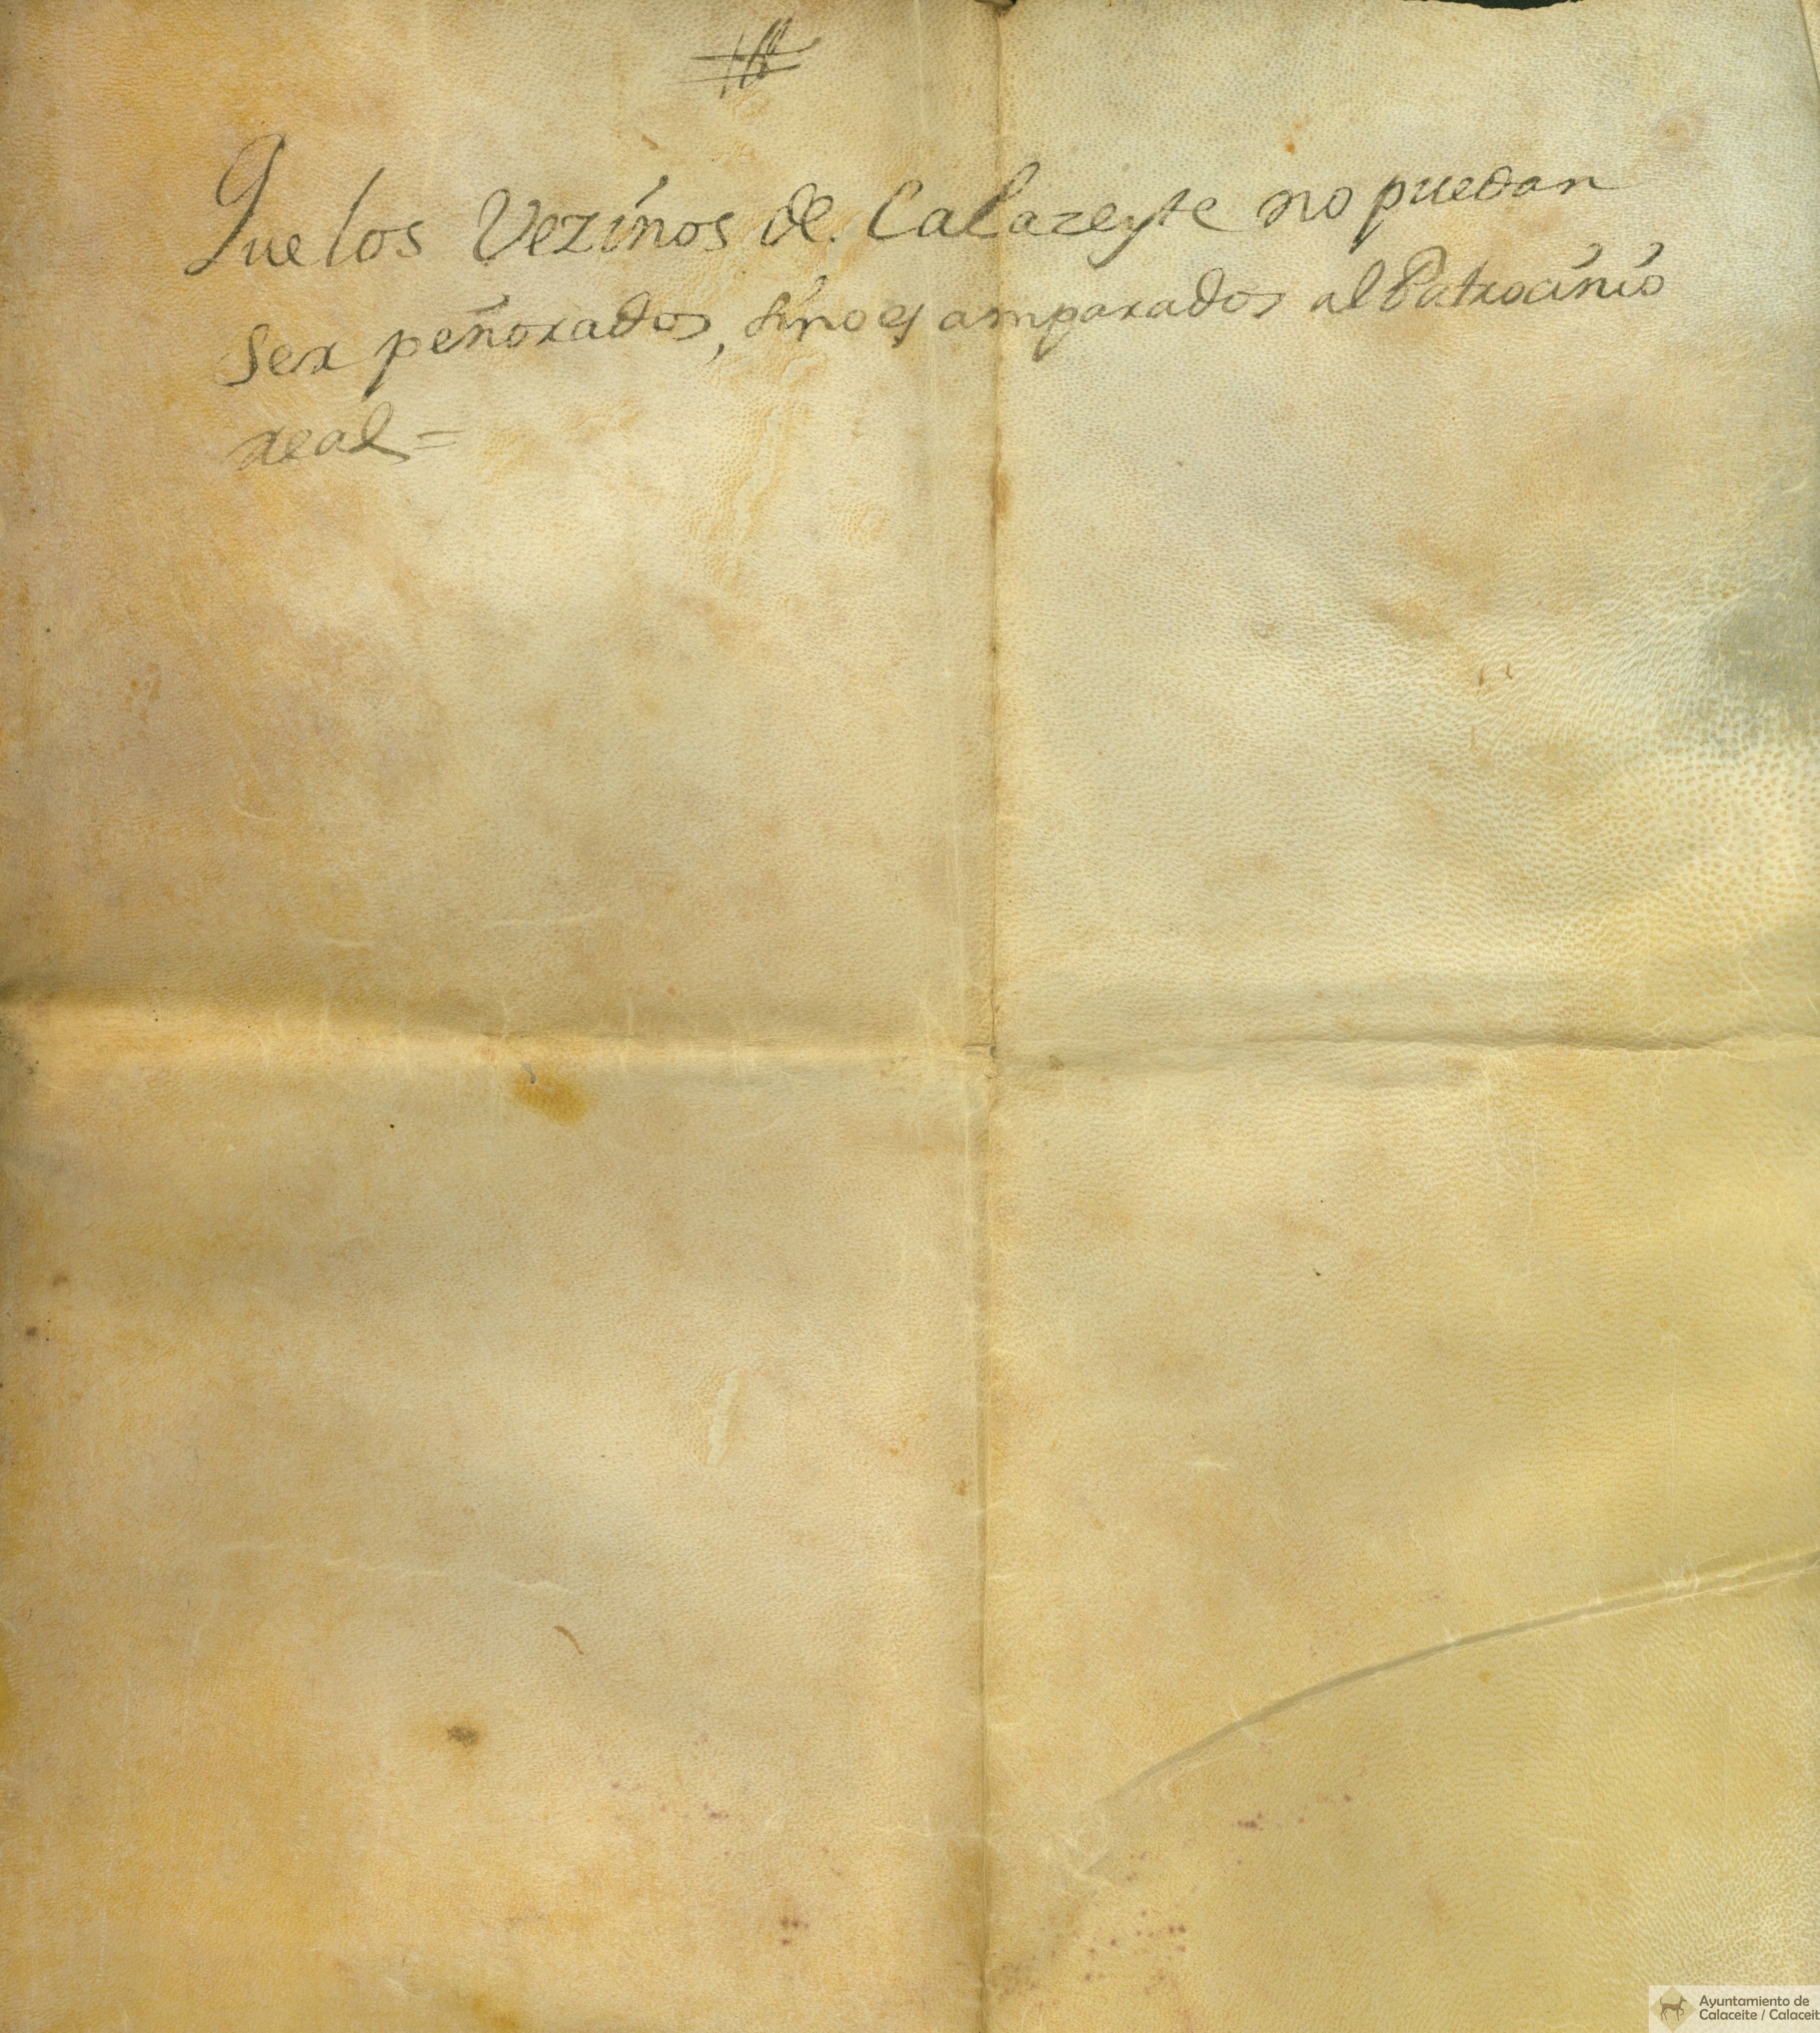 Que los Vezinos de Calazeyte no puedan
Ser peñorados, sino es amparados al Patrocinio
real =
Ayuntamiento de
Calaceite / Calaceit